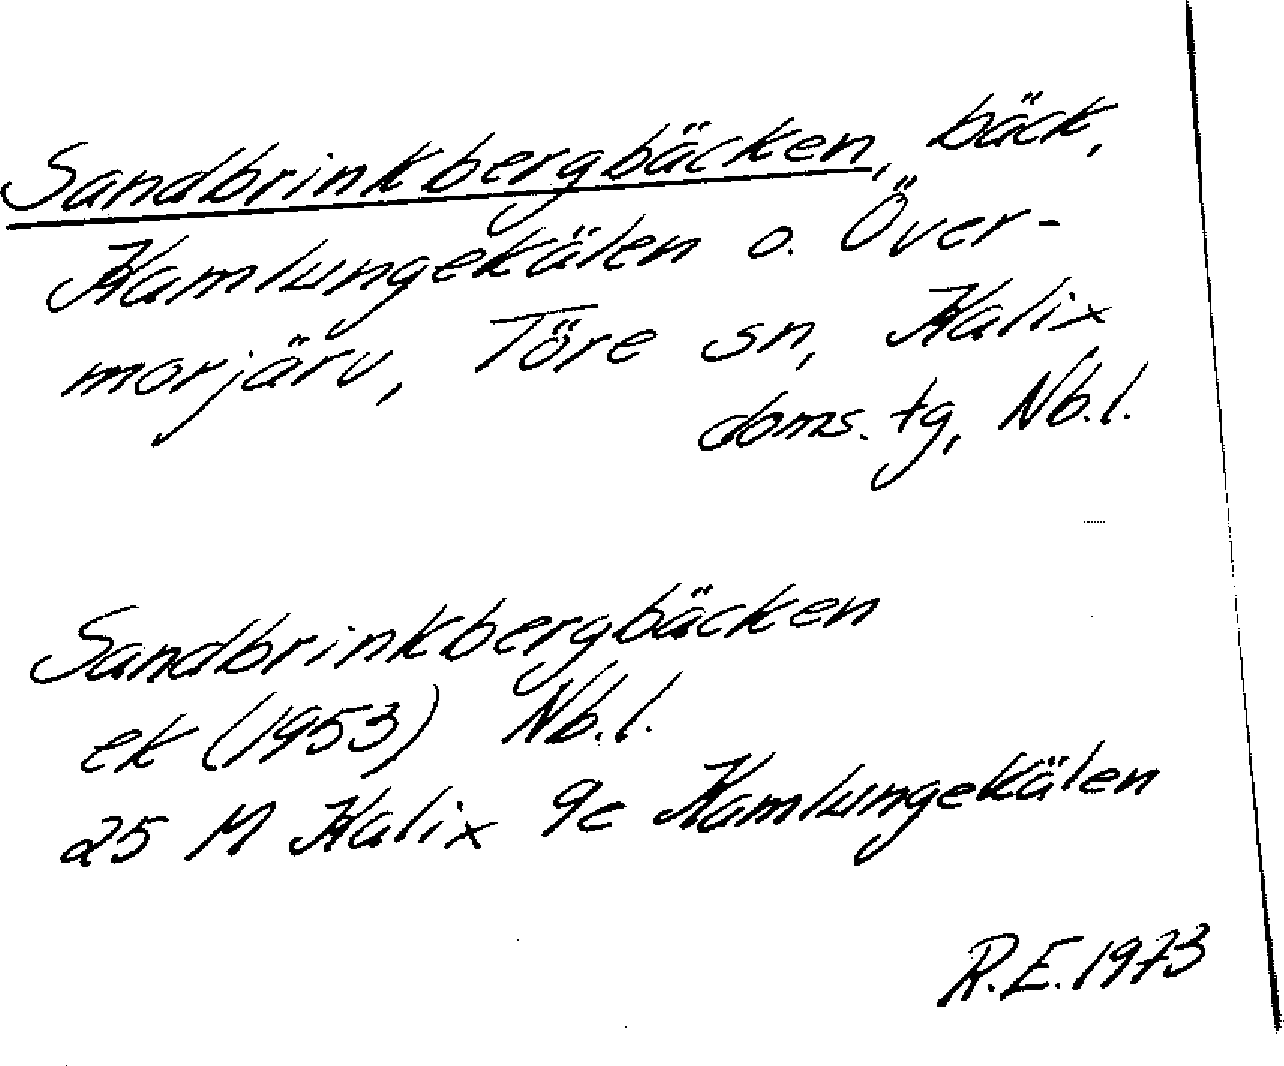 Sandbrinkbergbäcken, bäck,
Kamlungekälen o. Över-
morjärv, Töre sn, Kalix
doms. tg, Nb.l.
Sandbrinkbergbäcken
ek (1953) Nb.l.
25 M Kalix 9c Kamlungekälen
R.E. 1973